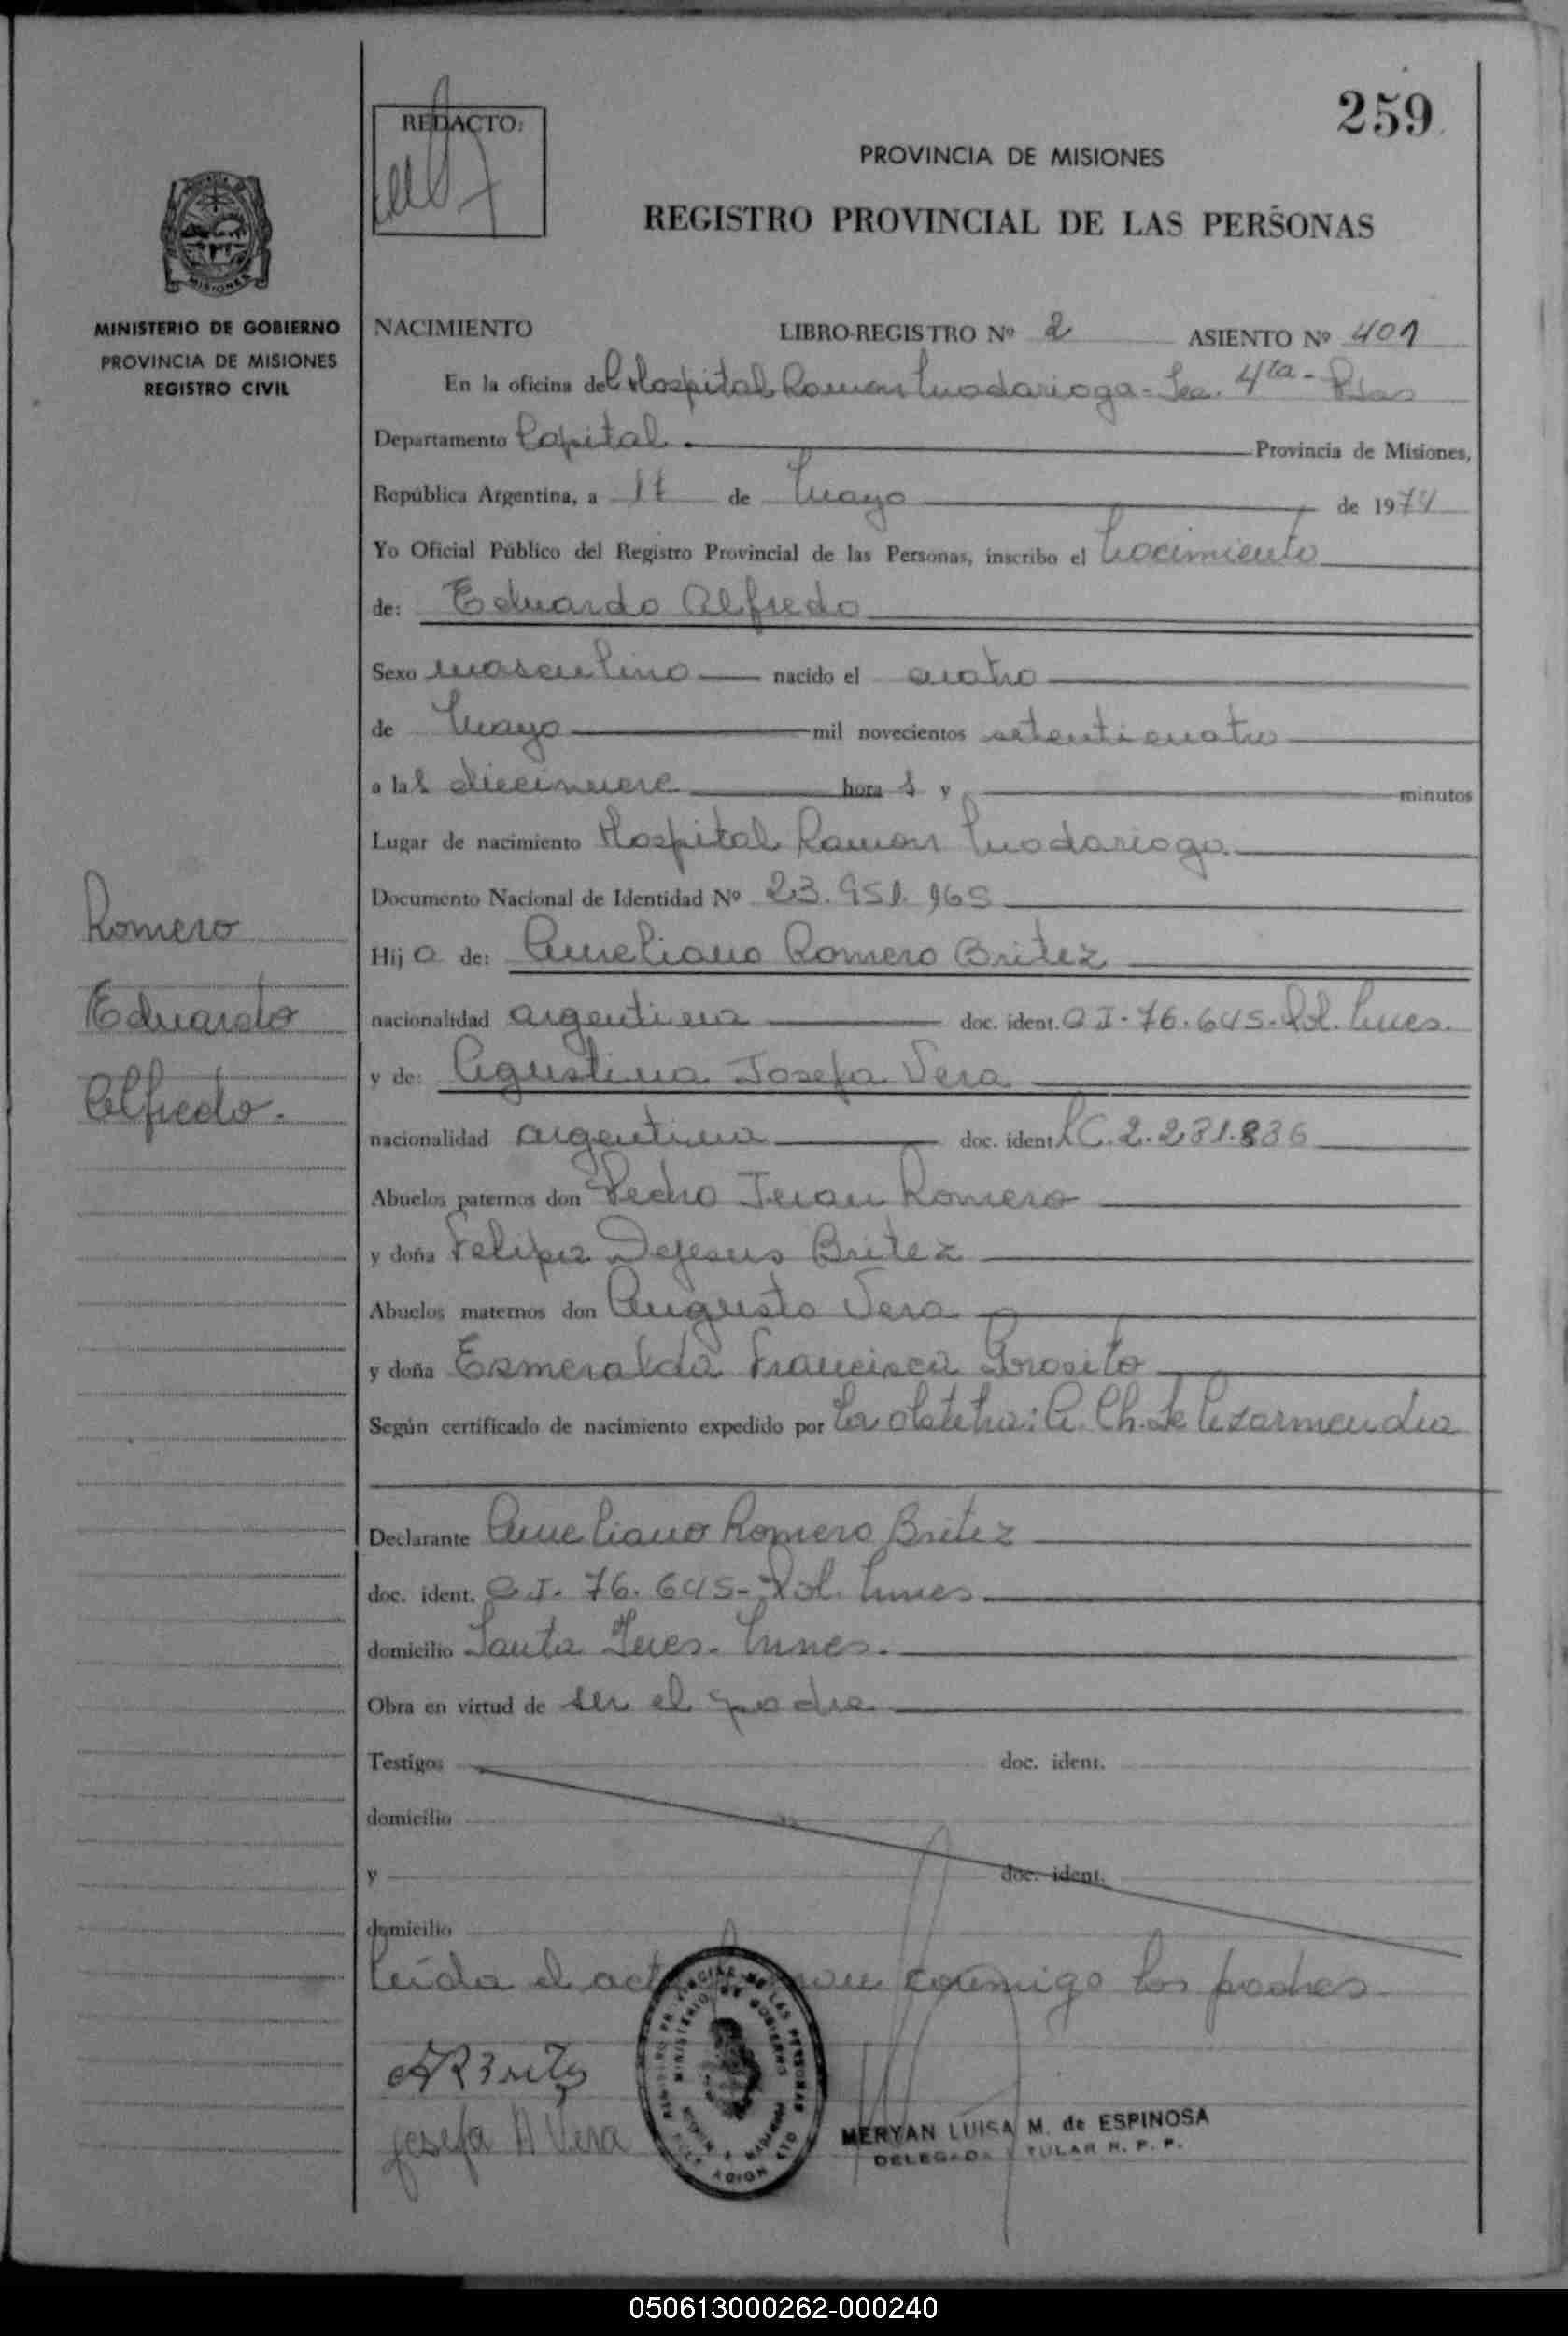 259
REDACTO:
PROVINCIA DE MISIONES
REGISTRO PROVINCIAL DE LAS PERSONAS
MISIONES
MINISTERIO DE GOBIERNO
PROVINCIA DE MISIONES
REGISTRO CIVIL
NACIMIENTO LIBRO-REGISTRO Nº 2 ASIENTO Nº 401
En la oficina del Hospital Ramon Madariaga - Sec. 4ta - Pdas
Departamento Capital. Provincia de Misiones,
República Argentina, a de Mayo de 1974
Yo Oficial Público del Registro Provincial de las Personas, inscribo el Nacimiento
de: Eduardo Alfredo
Sexo masculino nacido el cuatro
de Mayo mil novecientos setenticuatro
a las diecinueve horas y minutos
Lugar de nacimiento Hospital Ramon Madariaga.
Documento Nacional de Identidad Nº 23.951.965
Romero
Eduardo
Alfredo.
Hijo de: Aureliano Romero Britez
nacionalidad argentina doc. ident. CI-76.645-Pol. Mnes.
y de: Agustina Josefa Vera
nacionalidad argentina doc. ident LC.2.231.836
Abuelos paternos don Pedro Juan Romero
y doña Felipa Dejesus Britez
Abuelos maternos don Augusto Vera
y doña Esmeralda Francisca Prosito
Según certificado de nacimiento expedido por la obstetra: A. Ch. de Lezarmendia
Declarante Aureliano Romero Britez
doc. ident. C.I. 76.645-Pol. Mnes
domicilio Santa Ines - Mnes.
Obra en virtud de ser el padre
Testigos doc. ident.
domicilio
y doc. ident.
domicilio
Leida el acta conmigo los padres
A R Britez
Josefa A Vera
MINISTERIO DE GOBIERNO
MERYAN LUISA M. de ESPINOSA
DELEGADA TITULAR R. P. P.
050613000262-000240